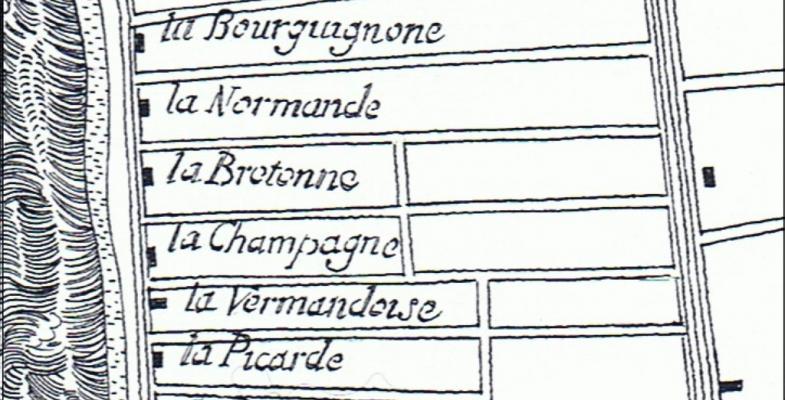 la Bourguignone
la Normande
la Bretonne
la Champagne
la Vermandoise
la Picarde